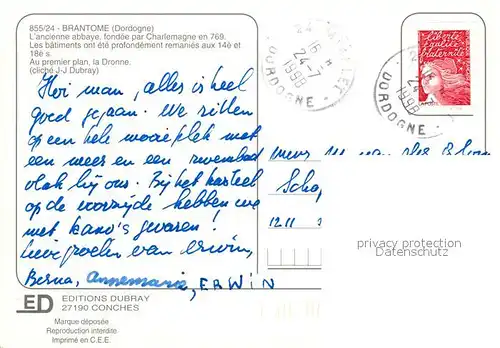 855/24 - BRANTOME (Dordogne)
L'ancienne abbaye, fondée par Charlemagne en 769.
Les bâtiments ont été profondément remaniés aux 14è et
18è s.
Au premier plan, la Dronne.
(cliché J-J Dubray)
Hoi man, alles is heel
goed gegaan. We zitten
op een hele mooie plek met
een meer en een zwembad
vlak bij ons. Bij het kasteel
op de voorzijde hebben we
met kano's gevaren!
Lieve groeten van Erwin,
Berna, Annemarie, ERWIN
ED EDITIONS DUBRAY
27190 CONCHES
Marque déposée
Reproduction interdite
Imprimé en C.E.E.
24
16 H
24-7
1998
DORDOGNE
Liberté
égalité
fraternité
24
1998
DORDOGNE
1211
privacy protection
Datenschutz